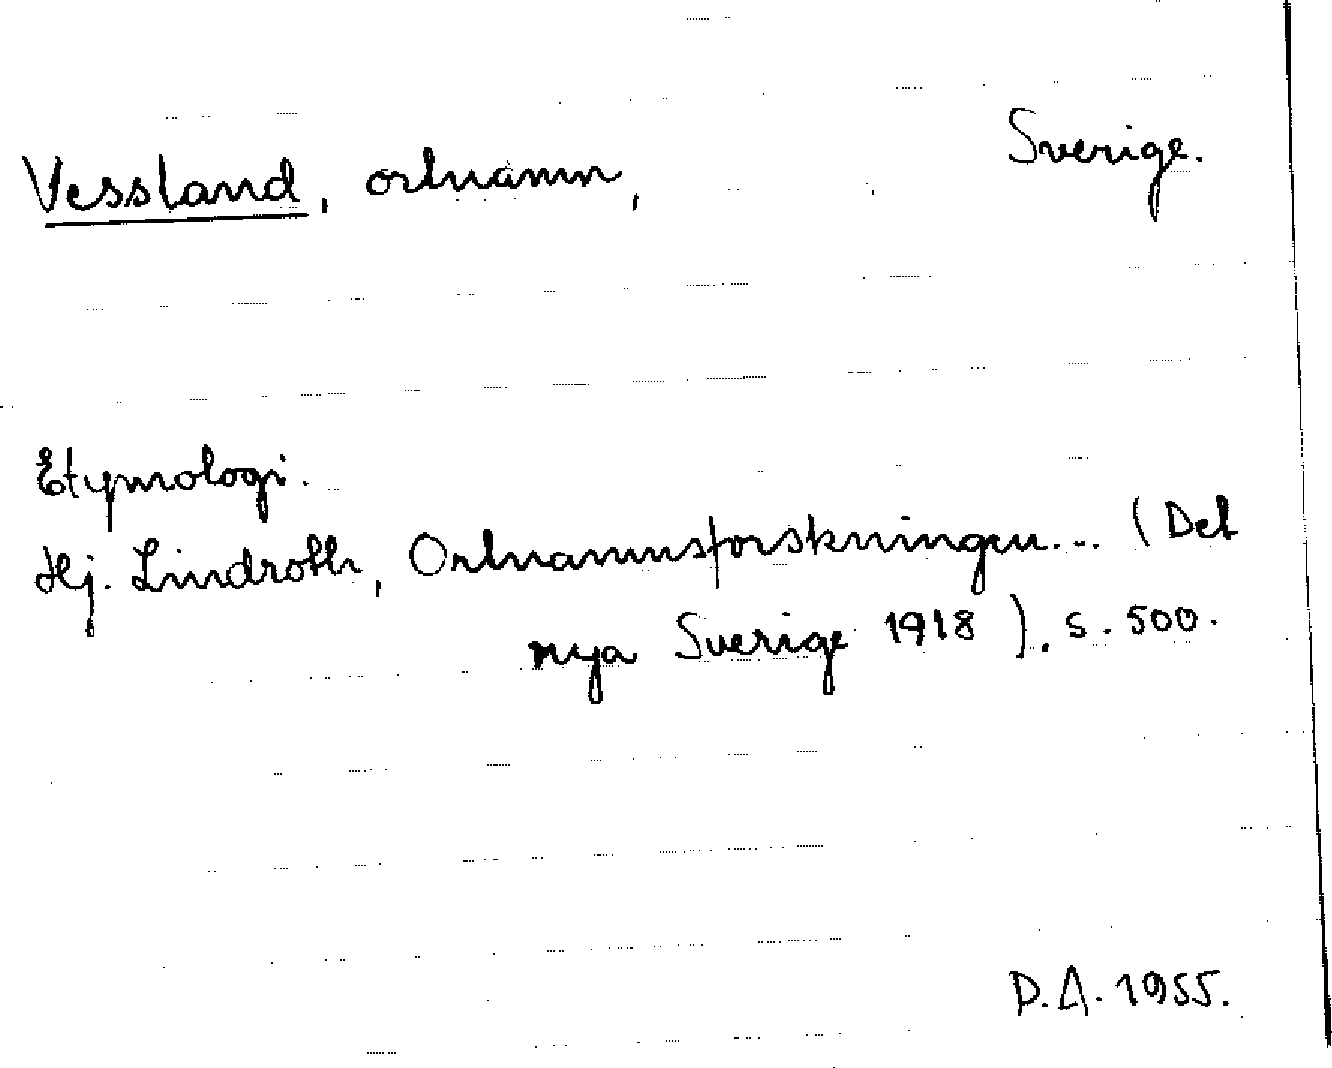 Vessland, ortnamn, Sverige.
Etymologi.
Hj. Lindroth, Ortnamnsforskningen... (Det
nya Sverige 1918). s. 500.
D.A. 1955.